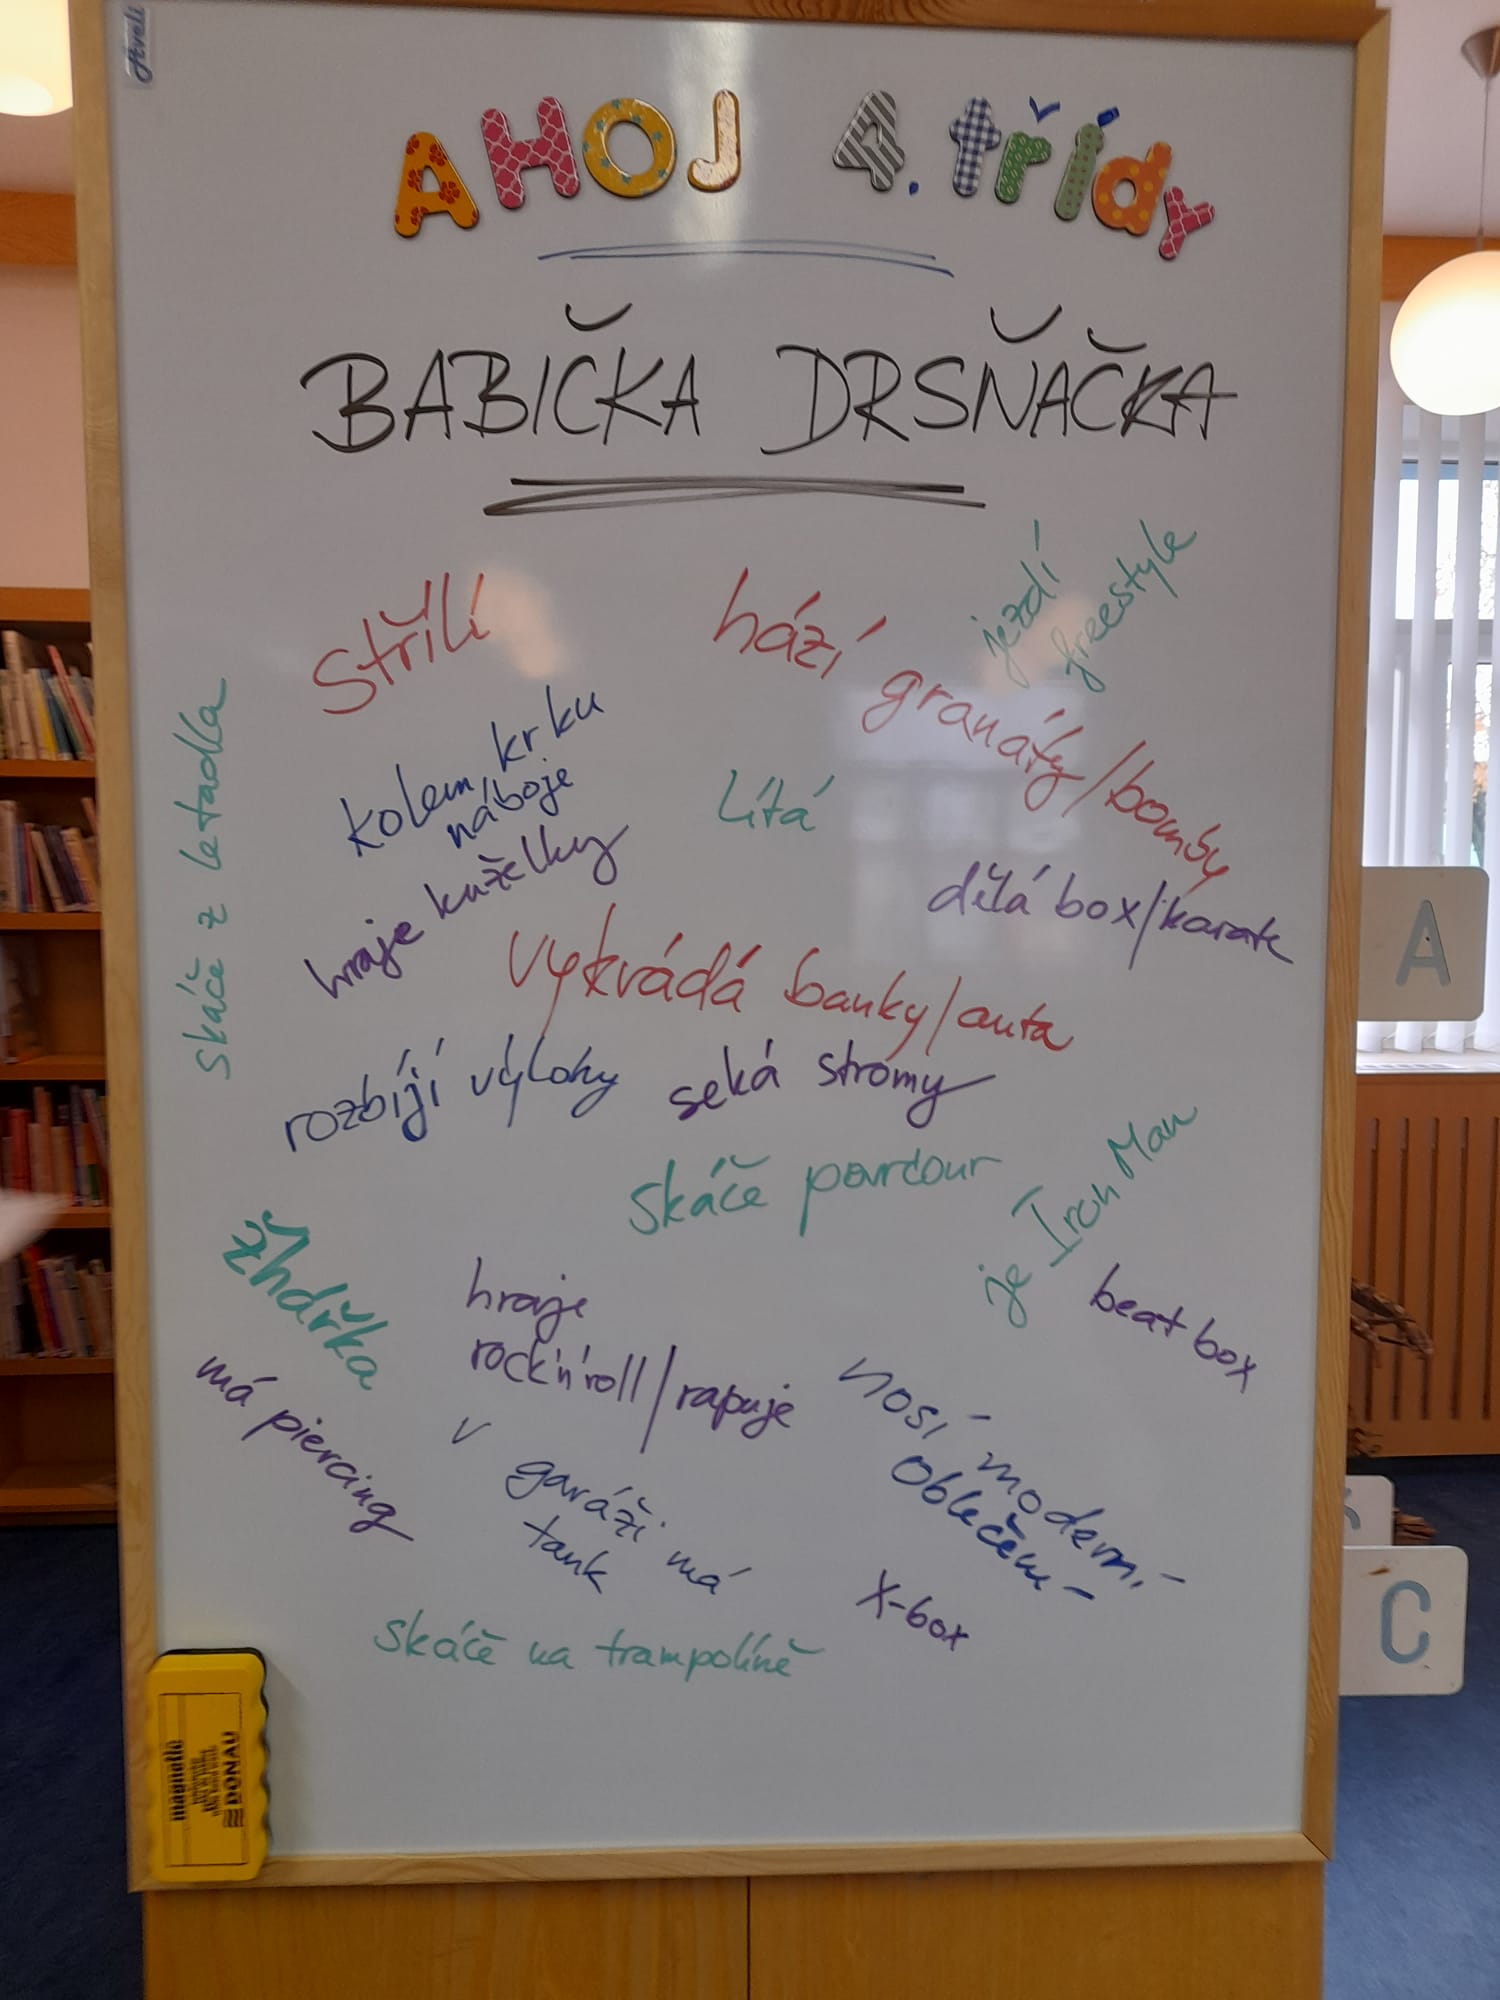 Aveli
AHOJ 4. třídy
BABIČKA DRSŇAČKA
jezdí
freestyle
střílí
hází granáty/bomby
skáče z letadla
kolem krku
náboje
lítá
hraje kuželky
dělá box/karate
vykrádá banky/auta
rozbíjí výlohy
seká stromy
skáče parcour
je Iron Man
žhářka
hraje
rock'n'roll/rapuje
beat box
má piercing
v garáži má
tank
nosí moderní
oblečení
X-box
skáče na trampolíně
magnetic
DONAU
A
C